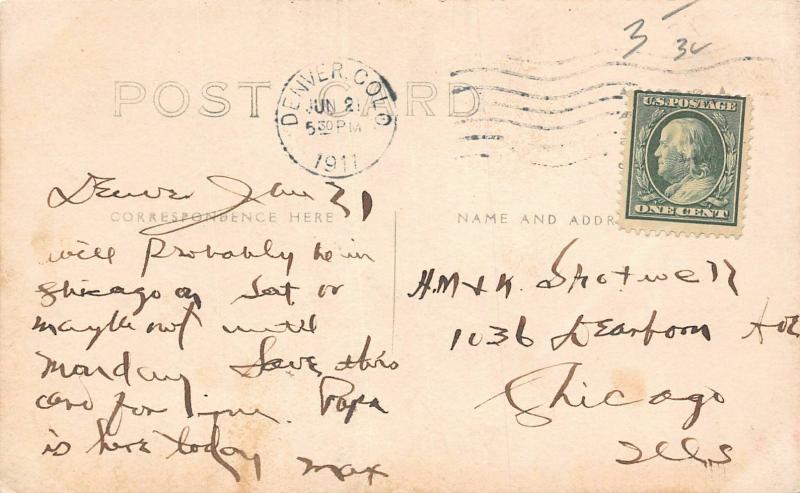 3 32
POST CARD
DENVER, COLO
JUN 21
5 30 PM
1911
U.S. POSTAGE
ONE CENT
Denver Jun 21
CORRESPONDENCE HERE
NAME AND ADDR
will probably be in
Chicago on Sat or
maybe not until
Monday Save this
card for him. Papa
is here today
Max
H.M & K. Shotwell
1036 Dearborn Ave
Chicago
Ills